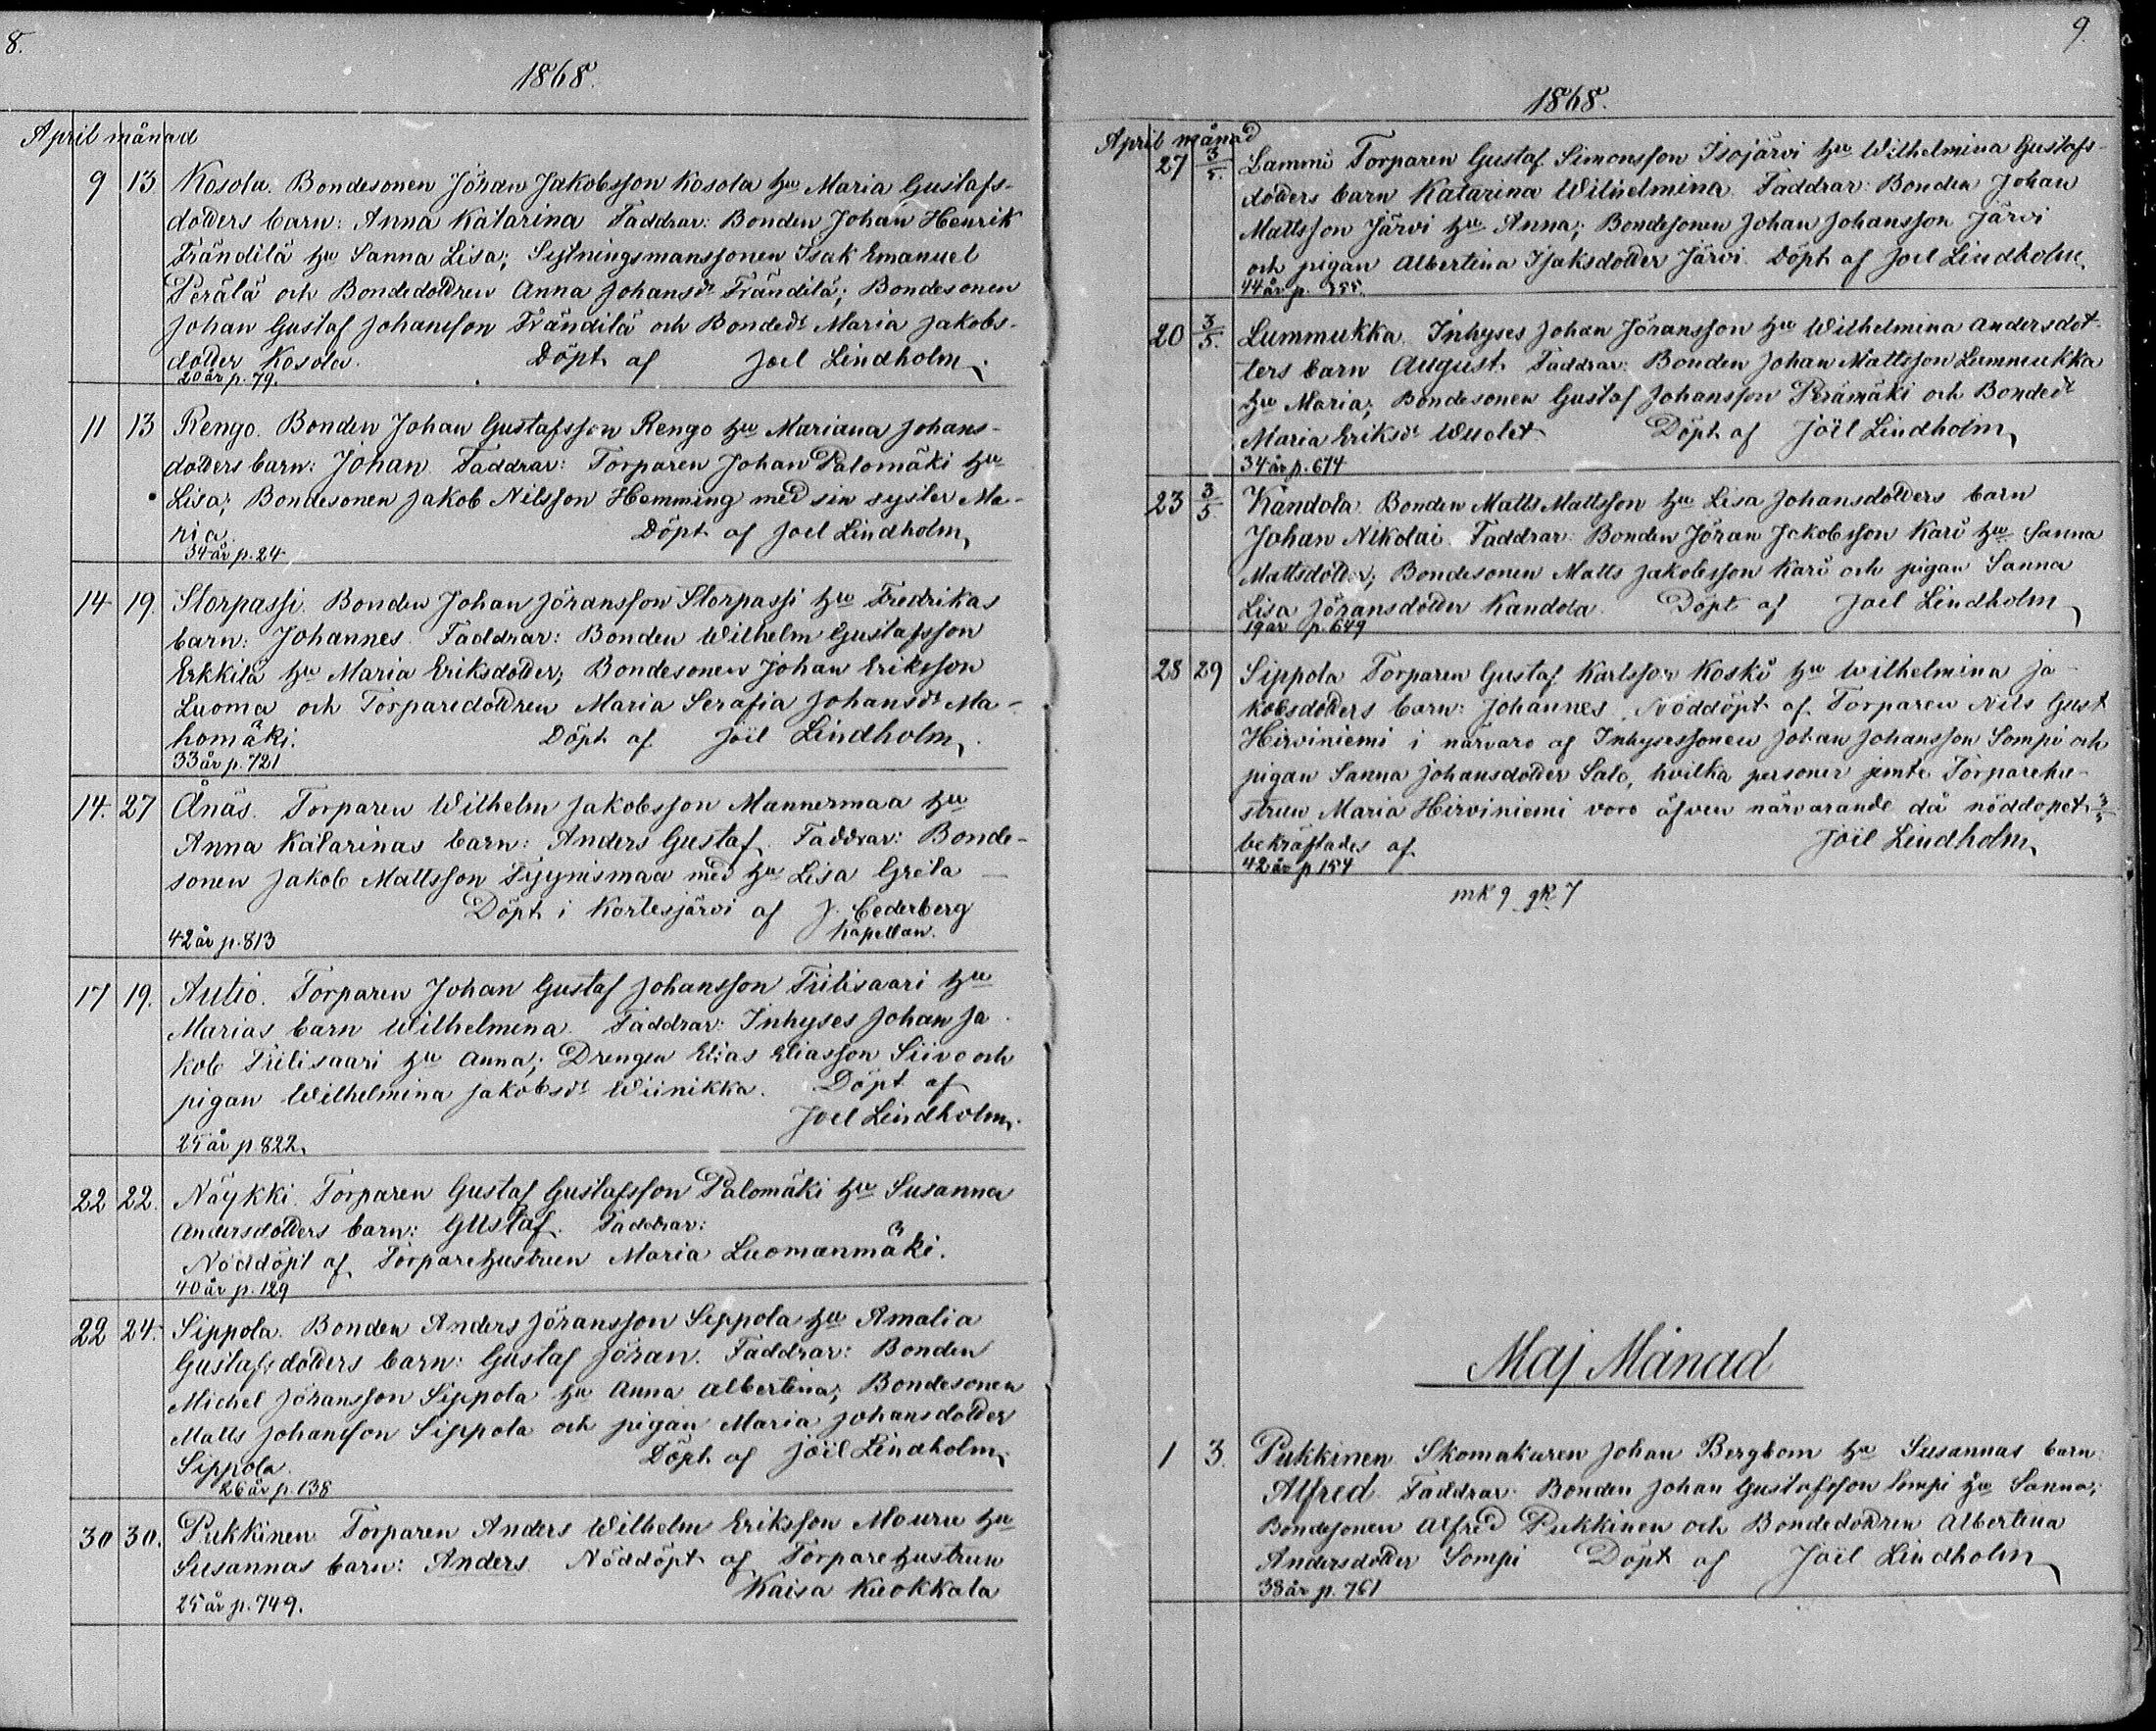 8.
1868.
April månad
9 13 Kosola. Bondesonen Jöran Jakobsson Kosola hu Maria Gustafs-
dotters barn: Anna Katarina Faddrar: Bonden Johan Henrik
Frändilä hu Sanna Lisa; Sytningsmanssonen Isak Emanuel
Perälä och Bondedottren Anna Johansdr Frändilä; Bondesonen
Johan Gustaf Johansson Frändilä och Bondedr Maria Jakobs-
dotter Kosola. Döpt af Joel Lindholm.
20 år p. 79.
11 13 Rengo. Bonden Johan Gustafsson Rengo hu Mariana Johans-
dotters barn: Johan. Faddrar: Torparen Johan Palomäki hu
Lisa; Bondesonen Jakob Nilsson Hemming med sin syster Ma-
ria. Döpt af Joel Lindholm
34 år p. 24
14 19. Storpassi. Bonden Johan Jöransson Storpassi hu Fredrikas
barn: Johannes. Faddrar: Bonden Wilhelm Gustafsson
Erkkilä hu Maria Eriksdotter; Bondesonen Johan Eriksson
Luoma och Torparedottren Maria Serafia Johansdr Ma-
homäki. Döpt af Joël Lindholm.
33 år p. 721
14. 27 Ånäs. Torparen Wilhelm Jakobsson Mannermaa hu
Anna Katarinas barn: Anders Gustaf. Faddrar: Bonde-
sonen Jakob Mattsson med hu Lisa Greta
Döpt i Kortesjärvi af J. Cederberg
kapellan.
42 år p. 813
17 19. Autio. Torparen Johan Gustaf Johansson Tiilisaari hu
Marias barn Wilhelmina. Faddrar: Inhyses Johan Ja-
kob Tiilisaari hu Anna; Drengen Elias Eliasson Siivo och
pigan Wilhelmina Jakobsdr Wiinikka. Döpt af
Joel Lindholm.
25 år p. 822.
22 22. Näykki. Torparen Gustaf Gustafsson Palomäki hu Susanna
Andersdotters barn: Gustaf. Faddrar:
Nöddöpt af Torparehustrun Maria Luomanmäki.
40 år p. 129
22 24. Sippola. Bonden Anders Jöransson Seppola hu Amalia
Gustafsdotters barn: Gustaf Jöran. Faddrar: Bonden
Michel Jöransson Sippola hu Anna Albertina; Bondesonen
Matts Johansson Sippola och pigan Maria Johansdotter
Sippola. Döpt af Joël Lindholm.
26 år p. 138
30 30. Pukkinen. Torparen Anders Wilhelm Eriksson Mouru hu
Susannas barn: Anders. Nöddöpt af Torparehustrun
Kaisa Kuokkala
25 år p. 749.
9.
1868.
April månad
27 3/5. Lammi Torparen Gustaf Simonsson Isojärvi hu Wilhelmina Gustafs-
dotters barn Katarina Wilhelmina. Faddrar: Bonden Johan
Mattsson Järvi hu Anna; Bondesonen Johan Johansson Järvi
och pigan Albertina Isaksdotter Järvi. Döpt af Joel Lindholm.
44 år p.
20 3/5. Lummukka. Inhyses Johan Jöransson hu Wilhelmina Andersdot-
ters barn August. Faddrar: Bonden Johan Mattsson Lummukka
hu Maria; Bondesonen Gustaf Johansson Perämäki och Bondedr
Maria Eriksdr Wuolet. Döpt af Joël Lindholm
34 år p. 674
23 3/5. Kandola. Bonden Matts Mattsson hu Lisa Johansdotters barn
Johan Nikolai. Faddrar: Bonden Jöran Jakobsson Kari hu Sanna
Mattsdotter; Bondesonen Matts Jakobsson Kari och pigan Sanna
Lisa Jöransdotter Kandola. Döpt af Joel Lindholm
19 år p. 649
28 29 Sippola Torparen Gustaf Karlsson Koski hu Wilhelmina Ja-
kobsdotters barn: Johannes. Nöddöpt af Torparen Nils Gust
Hirviniemi i närvaro af Inhysessonen Johan Johansson Sompi och
pigan Sanna Johansdotter Salo, hvilka personer jemte Torparehu-
strun Maria Hirviniemi voro äfven närvarande då nöddopet 3/5
bekräftades af Joël Lindholm
42 år p 154
mk 9 qk 7
Maj Månad
1 3. Pukkinen Skomakaren Johan Bergbom hu Susannas barn:
Alfred. Faddrar: Bonden Johan Gustafsson Sompi hu Sanna;
Bondesonen Alfred Pukkinen och Bondedottren Albertina
Andersdotter Sompi Döpt af Joël Lindholm
38 år p. 761